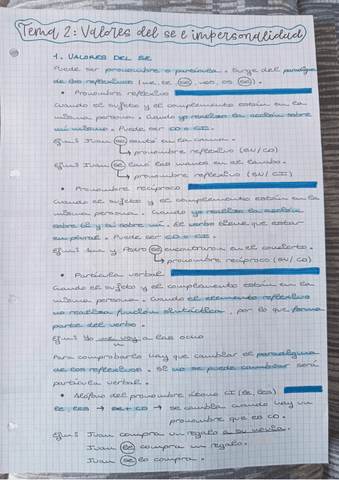 Tema 2: Valores del se e impersonalidad
1. VALORES DEL SE
Puede ser pronombre o partícula. Surge del paradigma
de los reflexivos (me, te, se, nos, os, se).
• Pronombre reflexivo
Cuando el sujeto y el complemento están en la
misma persona. Cuando yo realizo la acción sobre
mí mismo. Puede ser CD o CI.
Ejm: Juan se sentó en la cama.
↳ pronombre reflexivo (SN/CD)
Ejm: Juan se lavó las manos en el lavabo.
↳ pronombre reflexivo (SN/CI)
• Pronombre recíproco
Cuando el sujeto y el complemento están en la
misma persona. Cuando yo realizo la acción
sobre ti y tú sobre mí. El verbo tiene que estar
en plural. Puede ser CD o CI.
Ejm: Ana y Pedro se encontraron en el concierto.
↳ pronombre recíproco (SN/CD)
• Partícula verbal
Cuando el sujeto y el complemento están en la
misma persona. Cuando el elemento reflexivo
no realiza función sintáctica, por lo que forma
parte del verbo.
Ejm: Yo me voy a las ocho
Para comprobarlo hay que cambiar el paradigma
de los reflexivos. Si no se puede cambiar será
partícula verbal.
• Alófono del pronombre átono CI (le, les)
le, les → se + CD → se cambia cuando hay un
pronombre que es CD.
Ejm: Juan compra un regalo a su novia.
Juan le compra un regalo.
Juan se lo compra.